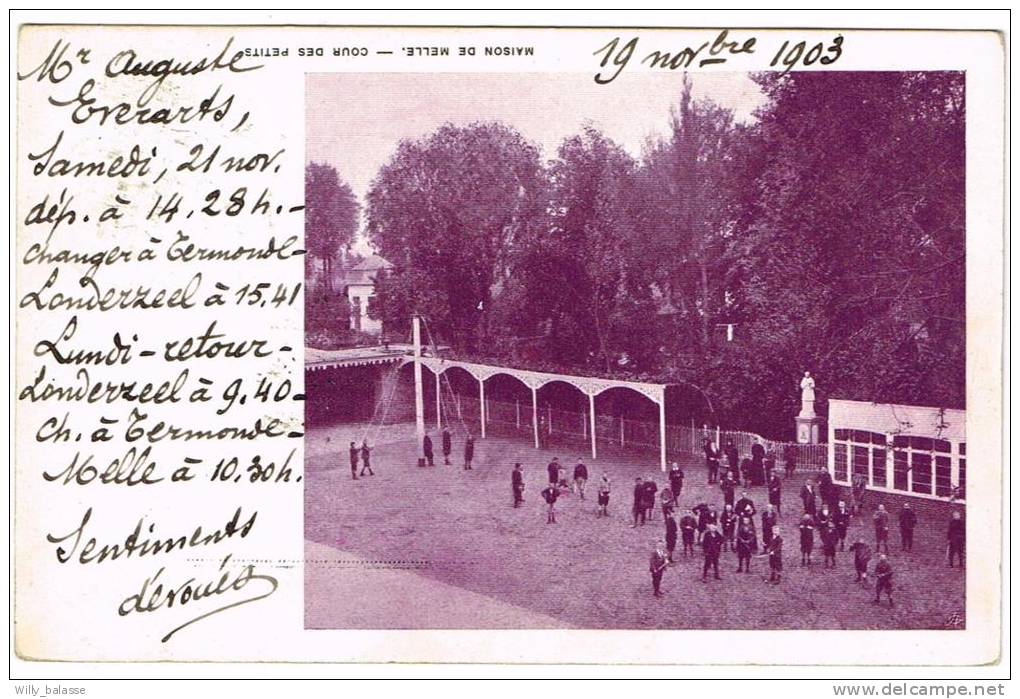 MAISON DE MELLE. — COUR DES PETITS
19 novbre 1903
Mr Auguste
Everarts,
Samedi, 21 nov.
dép. à 14,28 h. -
changer à Termonde -
Londerzeel à 15.41
Lundi - retour -
Londerzeel à 9.40 -
ch. à Termonde -
Melle à 10.30 h.
Sentiments
dévoués
Willy_balasse
www.delcampe.net